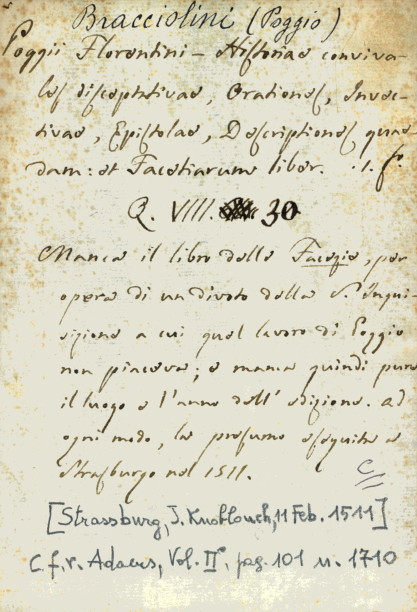 Bracciolini (Poggio)
Poggii Florentini - Historiae conviva-
les disceptativae, Orationes, Invec-
tivae, Epistolae, Descriptiones quae-
dam: et Facetiarum liber. 1. fo
Q. VIII. 30
Manca il libro delle Facezie, per
opera di un divoto della S. Inqui-
sizione a cui quel lavoro di Poggio
non piaceva; e manca quindi pure
il luogo e l'anno dell' edizione. ad
ogni modo, la presumo eseguita a
Strasburgo nel 1511.
[Strassburg, J. Knoblouch, 11 Feb. 1511]
C.f.r. Adams, Vol. II°. pag. 101 n. 1710